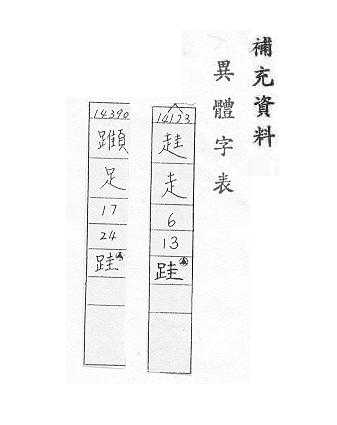 補充資料
異體字表
14123
走
6
13
跬
14390
足
17
24
跬